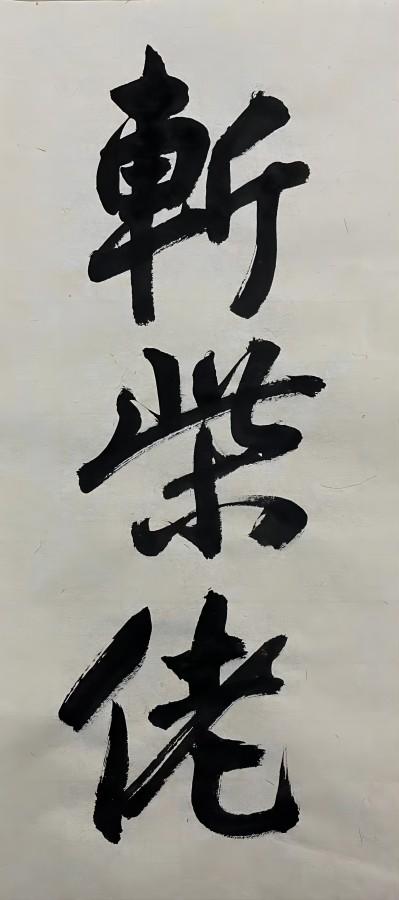 斬柴佬